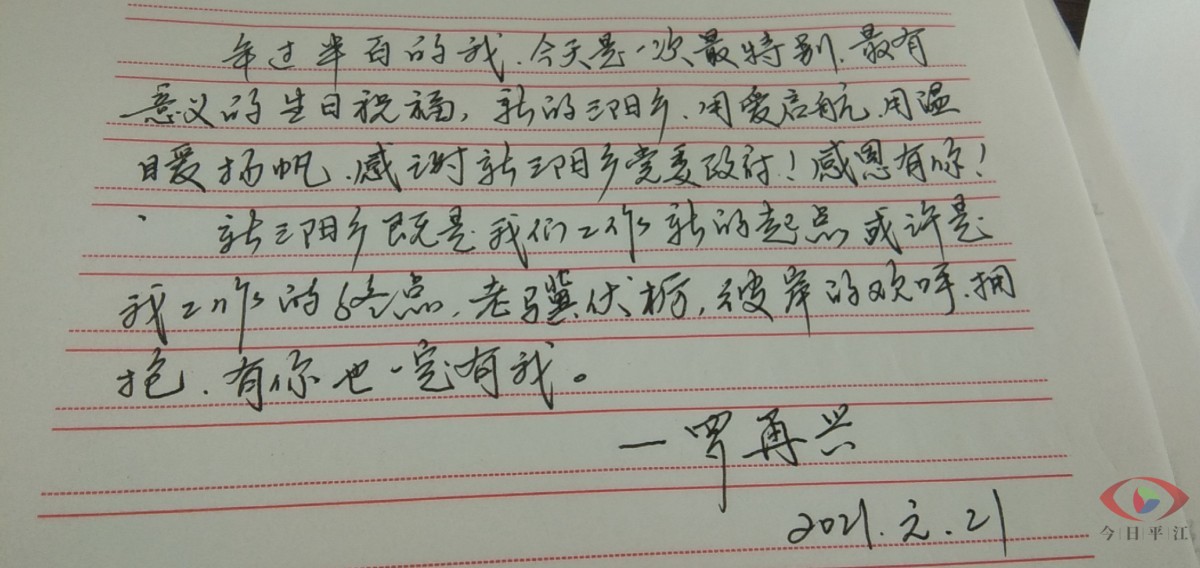 年过半百的我.今天是一次最特别.最有
意义的生日祝福,新的三阳乡.用爱启航.用温
暖扬帆.感谢新三阳乡党委政府!感恩有你!
新三阳乡既是我们工作新的起点或许是
我工作的终点.老骥伏枥,彼岸的欢呼.拥
抱.有你也一定有我。
一罗再兴
2021.元.21
今日平江